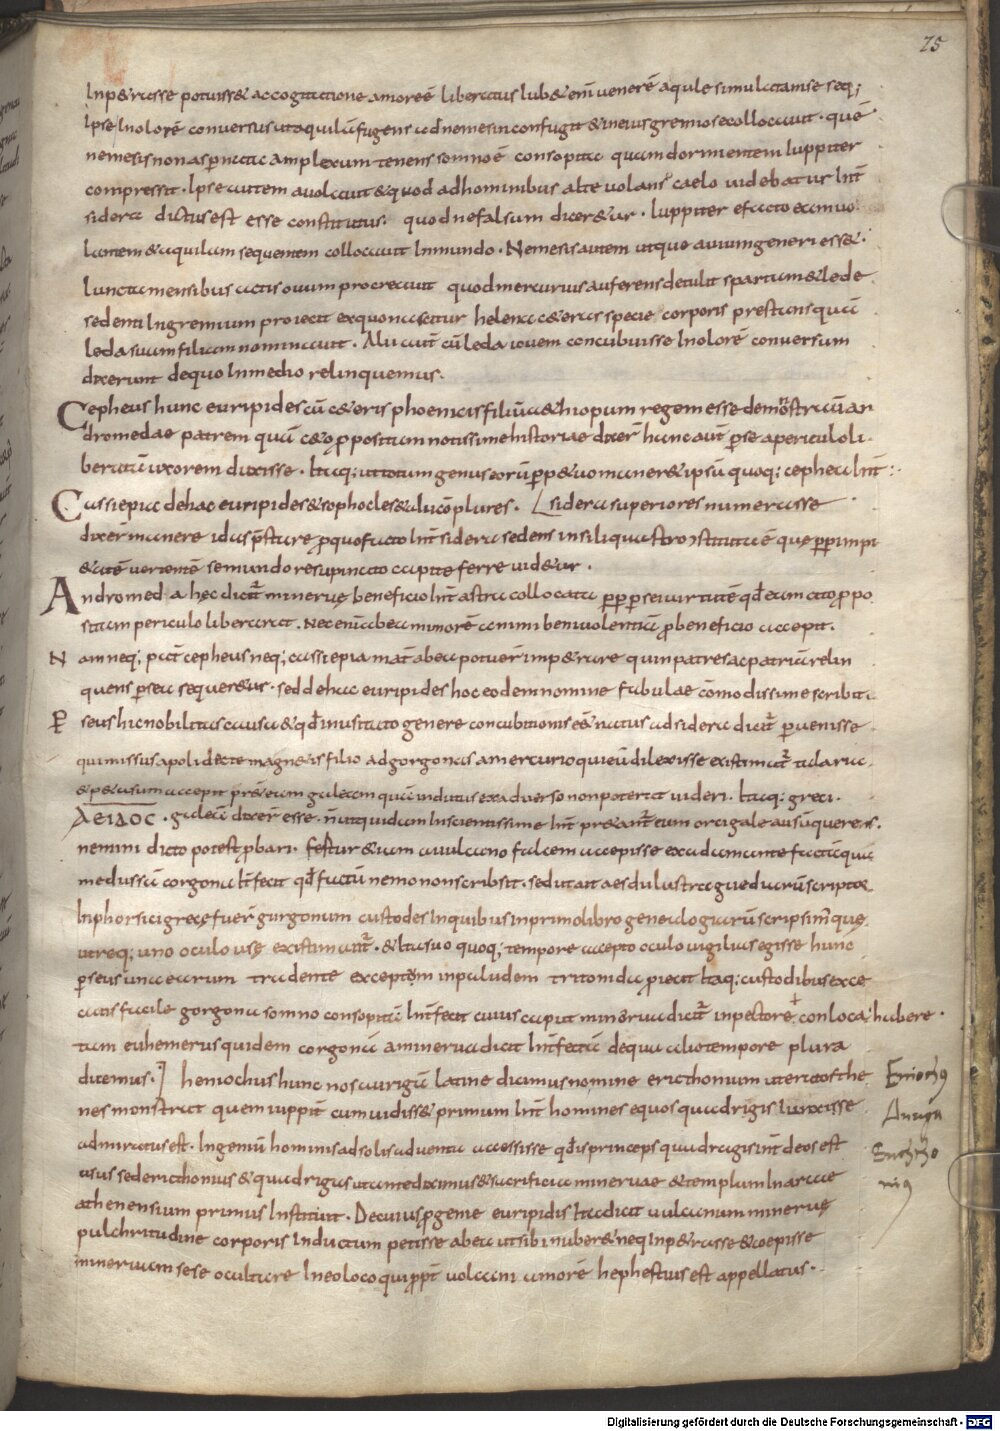 75
Inp&rasse potuiss& accogitatione amoreē liberatus Iub& enī venerē aquile simulatam se seq;
Ipse Inolorē conversus utaquilā fugens adnemesin confugit & ineius gremio se collocavit. quē
nemesis non aspnata amplexum tenens somnoē consopita quam dormientem Iuppiter
compressit. Ipse autem avolavit & quod ad hominibus alte volans caelo videbatur Int̄
sidera dictus est esse constitutus. quod ne falsum dicer&ur. Iuppiter e facto eum vo
lantem & aquilam sequentem collocavit In mundo. Nemesis autem utque avium generi ess&.
Iuncta mensibus actis ovum procreavit quod mercurius auferens detulit spartam & lede
sedenti Ingremium proiecit ex quo nascitur helena c&eras specie corporis prestans quā
leda suam filiam nominavit. Alii aut̄ cū leda iovem concubuisse Inolorē conversum
dixerunt de quo In medio relinquemus.
Cepheus hunc euripides cū c&eris phoenicis filiū a&hiopum regem esse demōstravit an
dromedae patrem quā c&o ppositam notissime historiae dixer̄ hunc aut̄ pse a periculo li.
beratā uxorem duxisse. Itaq; ut totum genus eorū pp&uo maner& ipsū quoq; cepheū Int̄:.
Cassiepia de hac euripides & sophocles & alii cōplures. sidera superiores numerasse
dixer̄ manere idas pstare pquo facto Int̄ sidera sedens in siliquastro cstituta ē quę pp impi
&atē vertentē se mundo resupinato capite ferre vid&ur.
Andromeda hęc dicit̄ minervę beneficio Int̄ astra collocata pp psei virtutē qd eam cito ppo
sitam periculo liberarat. Nec enī ab ea minorē animi benivolentiā p beneficio accepit.
Nam neq; pat̄ cepheus neq; cassiepia mat̄ ab ea potuer̄ imp&rare quin patres ac patriā relin
quens psea sequer&ur. sed de hac euripides hoc eodem nomine fabulae cōmodissime scribit.
Pseus hic nobilitas causa & qd inusitato genere concubitionis eē natus ad sidera dicit̄ pvenisse
qui missus a polidecte magn&is filio ad gorgonas a mercurio qui eū dilexisse existimat̄ talaria.
& p&asum accepit pr&eam galeam qua indutus ex adverso non poterat videri. Itaq; greci.
ΑΕΙΔΟC. galeā dixer̄ esse. n̄ ut quidam Inscientissime Int̄pr&ant̄ eum orci galea usū querens.
nemini dicto potest pbari. fertur & iam a vulcano falcem accepisse ex adamante factā qua
medussā gorgona Int̄fecit qd factū nemo non scribsit. sed ut ait aesdulus tragueduarū scriptor
In phorsici grecę fuer̄ gorgonum custodes In quibus in primo libro genealogiarū scripsim̄ quę
utreq; uno oculo usę existimant̄. & Ita suo quoq; tempore accepto oculo vigilias egisse hunc
pseus una earum tradente exceptom inpaludem tritonida piecit Itaq; custodibus exce
catis facile gorgona somno consopitā Int̄fecit cuius caput minerva dicit̄ inpectore conloca habere.
tum euhemerus quidem gorgonā a minerva dicit Int̄fectā de qua alio tempore plura
dicemus. heniochus hunc nos aurigā latine dicimus nomine ericthonium ut eratosthe
nes monstrat quem iuppit̄ cum vidiss& primum Int̄ homines equos quadrigis Iunxisse
admiratus est. Ingeniū hominis ad solis adventa accessisse qd is princeps quadragis int̄ deos est
usus sed ericthonius & quadrigas ut ante diximus & sacrificia minervae & templum In arcae
athenensium primus Instituit. De cuius pgenie euripidis Ita dicit vulcanum minervę
pulchritudine corporis Inductum petisse ab ea ut sibi nuber& neq Inp&rasse & coepisse
minervam sese ocultare In eo loco qui ppt̄ volcani amorē hephestius est appellatus.
Digitalisierung gefördert durch die Deutsche Forschungsgemeinschaft - DFG